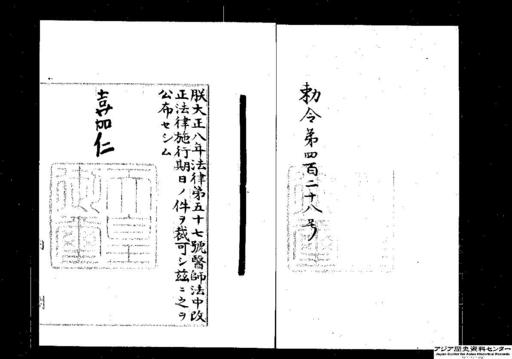 勅令第四百二十八号
朕大正八年法律第五十七號醫師法中改
正法律施行期日ノ件ヲ裁可シ茲ニ之ヲ
公布セシム
嘉仁
天皇
御璽
アジア歴史資料センター
Japan Center for Asian Historical Records